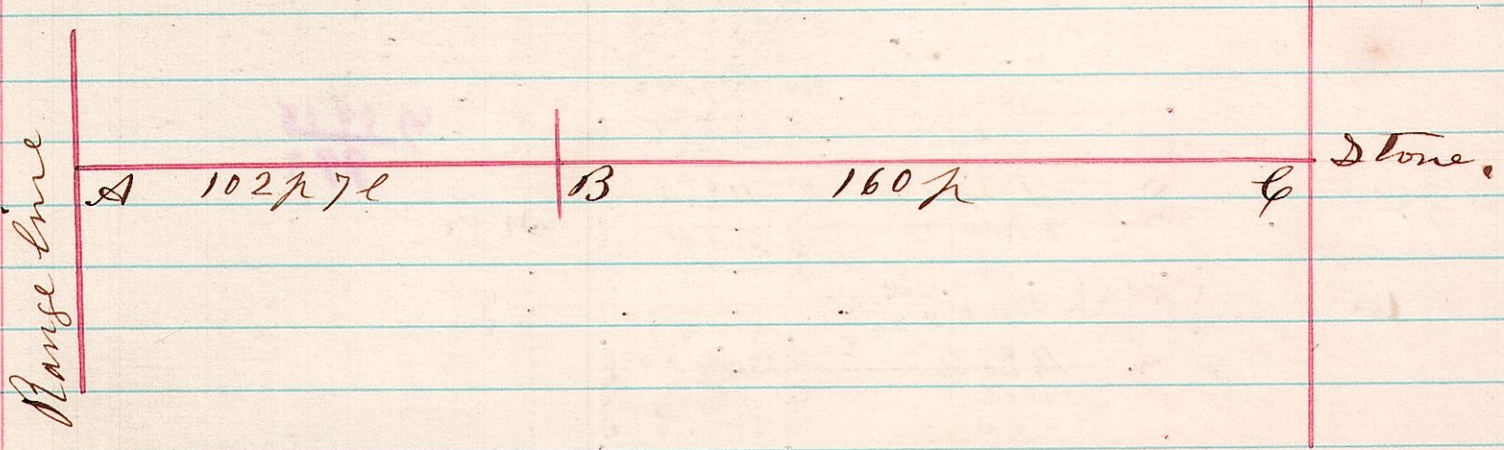 Range line
A 102p 7l B 160p C Stone.